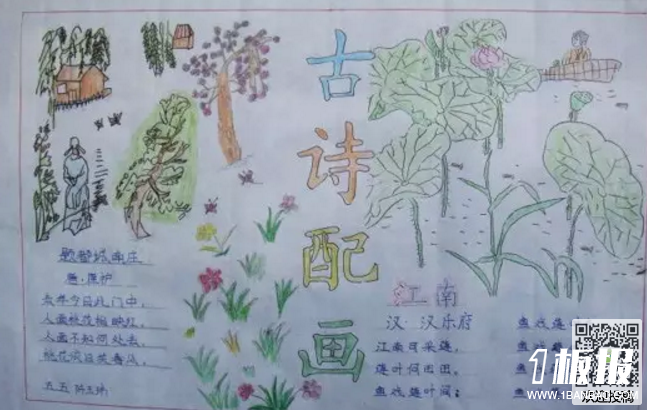 古诗配画
题都城南庄
唐·崔护
去年今日此门中,
人面桃花相映红。
人面不知何处去,
桃花依旧笑春风。
五五
江南
汉 汉乐府
江南可采莲,
莲叶何田田,
鱼戏莲叶间;
鱼戏莲
鱼戏
1板报
WWW.1BANBAO.COM
欢迎投稿